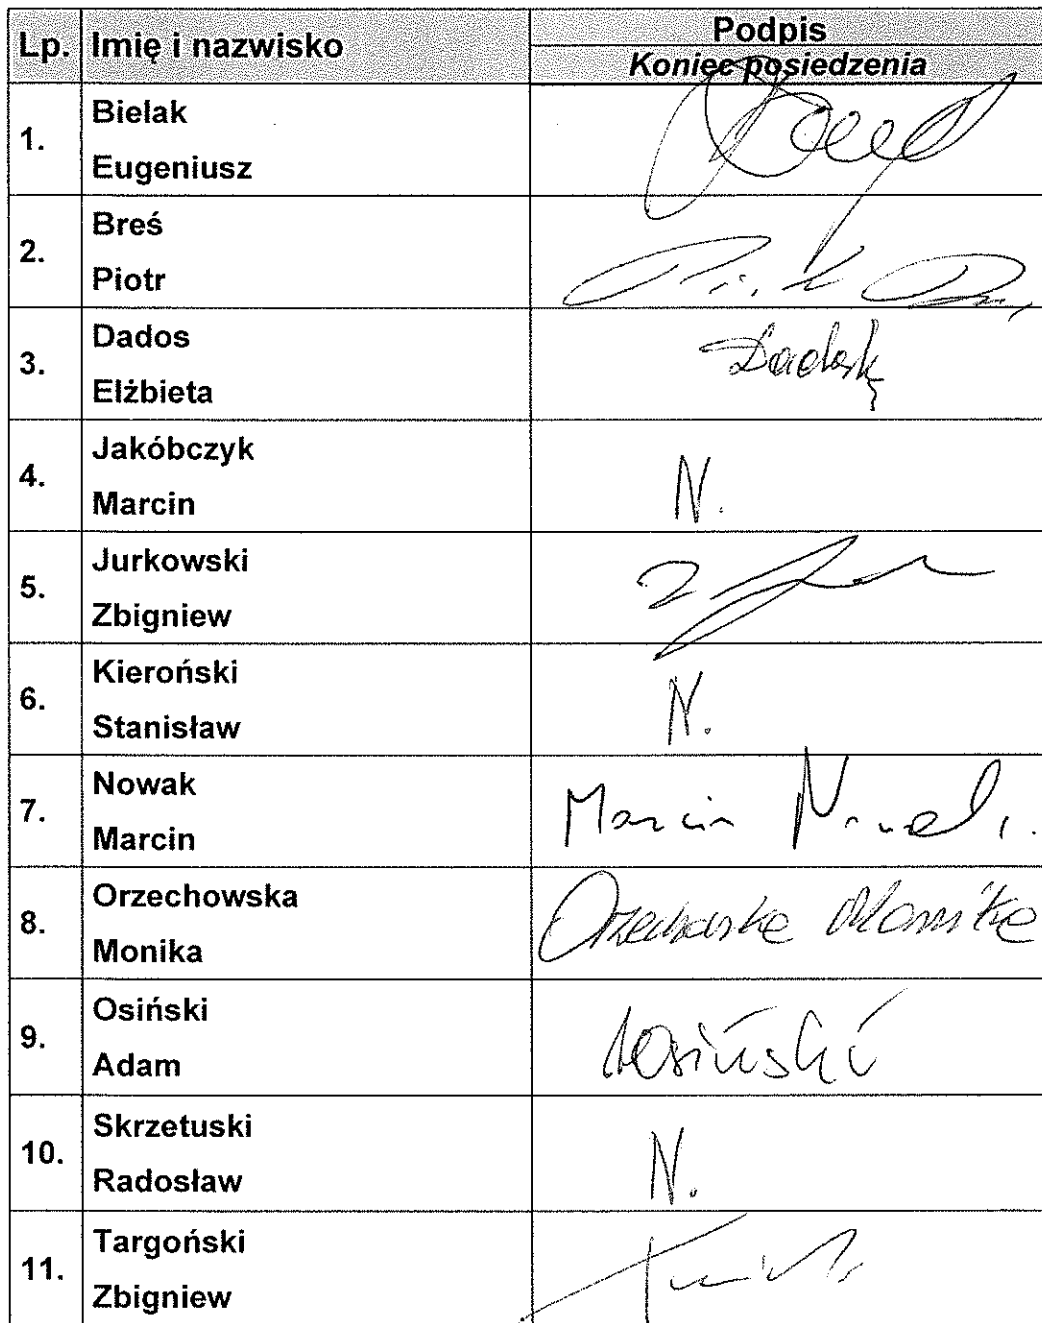 Lp. Imię i nazwisko Podpis
Koniec posiedzenia
1. Bielak
Eugeniusz
2. Breś
Piotr
3. Dados
Elżbieta
4. Jakóbczyk
Marcin N.
5. Jurkowski
Zbigniew
6. Kieroński
Stanisław N.
7. Nowak
Marcin Marcin Nowak
8. Orzechowska
Monika Orzechowska Monika
9. Osiński
Adam AOsiński
10. Skrzetuski
Radosław N.
11. Targoński
Zbigniew